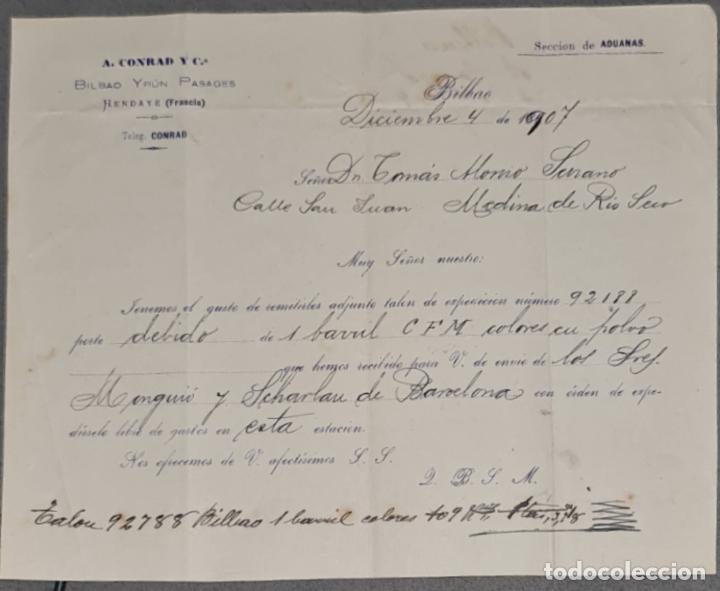 Seccion de ADUANAS.
A. CONRAD Y C.a
BILBAO YRÚN PASAGES
HENDAYE (Francia)
Teleg. CONRAD
Bilbao
Diciembre 4 de 1907
Señor Dn Tomás Alonso Serrano
Calle San Juan Medina de Rio Seco
Muy Señor nuestro:
Tenemos el gusto de remitirles adjunto talon de expedición número 92188
porte debido de 1 barril CFM colores en polvo
que hemos recibido para V. de envio de los Sres.
Monguió y Scharlau de Barcelona con órden de expe-
dírselo libre de gastos en esta estación.
Nos ofrecemos de V. afectísimos S. S.
Q. B. S. M.
Talon 92788 Bilbao 1 barril colores 109 K
todocoleccion.net